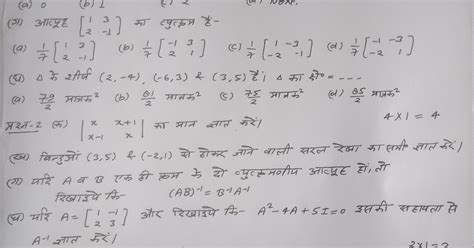 (a) 0 (b) 1 (c) 2 (d) None.
(ग) आव्यूह [1 3; 2 -1] का व्युत्क्रम है-
(a) 1/7 [1 3; 2 -1] (b) 1/7 [-1 3; 2 1] (c) 1/7 [1 -3; -2 -1] (d) 1/7 [-1 -3; -2 1]
(घ) Δ के शीर्ष (2,-4), (-6,3) & (3,5) हैं। Δ का क्षे० = ---
(a) 79/2 मात्रक² (b) 81/2 मात्रक² (c) 75/2 मात्रक² (d) 85/2 मात्रक²
प्रश्न-2 (क) |x x+1; x-1 x| का मान ज्ञात करें। 4x1 = 4
(ख) बिन्दुओं (3,5) & (-2,1) से होकर जाने वाली सरल रेखा का समी ज्ञात करें।
(ग) यदि A व B एक ही क्रम के दो व्युत्क्रमणीय आव्यूह हों, तो
दिखाइये कि- (AB)⁻¹ = B⁻¹A⁻¹
(घ) यदि A = [1 -1; 2 3] और दिखाइये कि- A²-4A+5I=0 इसकी सहायता से
A⁻¹ ज्ञात करें।